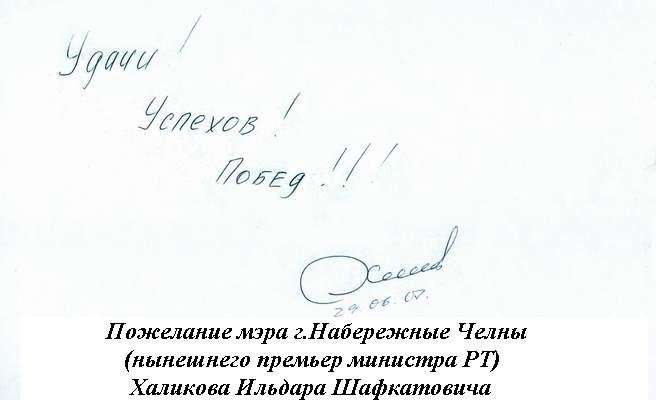 Удачи!
Успехов!
Побед!!!
29.06.07.
Пожелание мэра г.Набережные Челны
(нынешнего премьер министра РТ)
Халикова Ильдара Шафкатовича